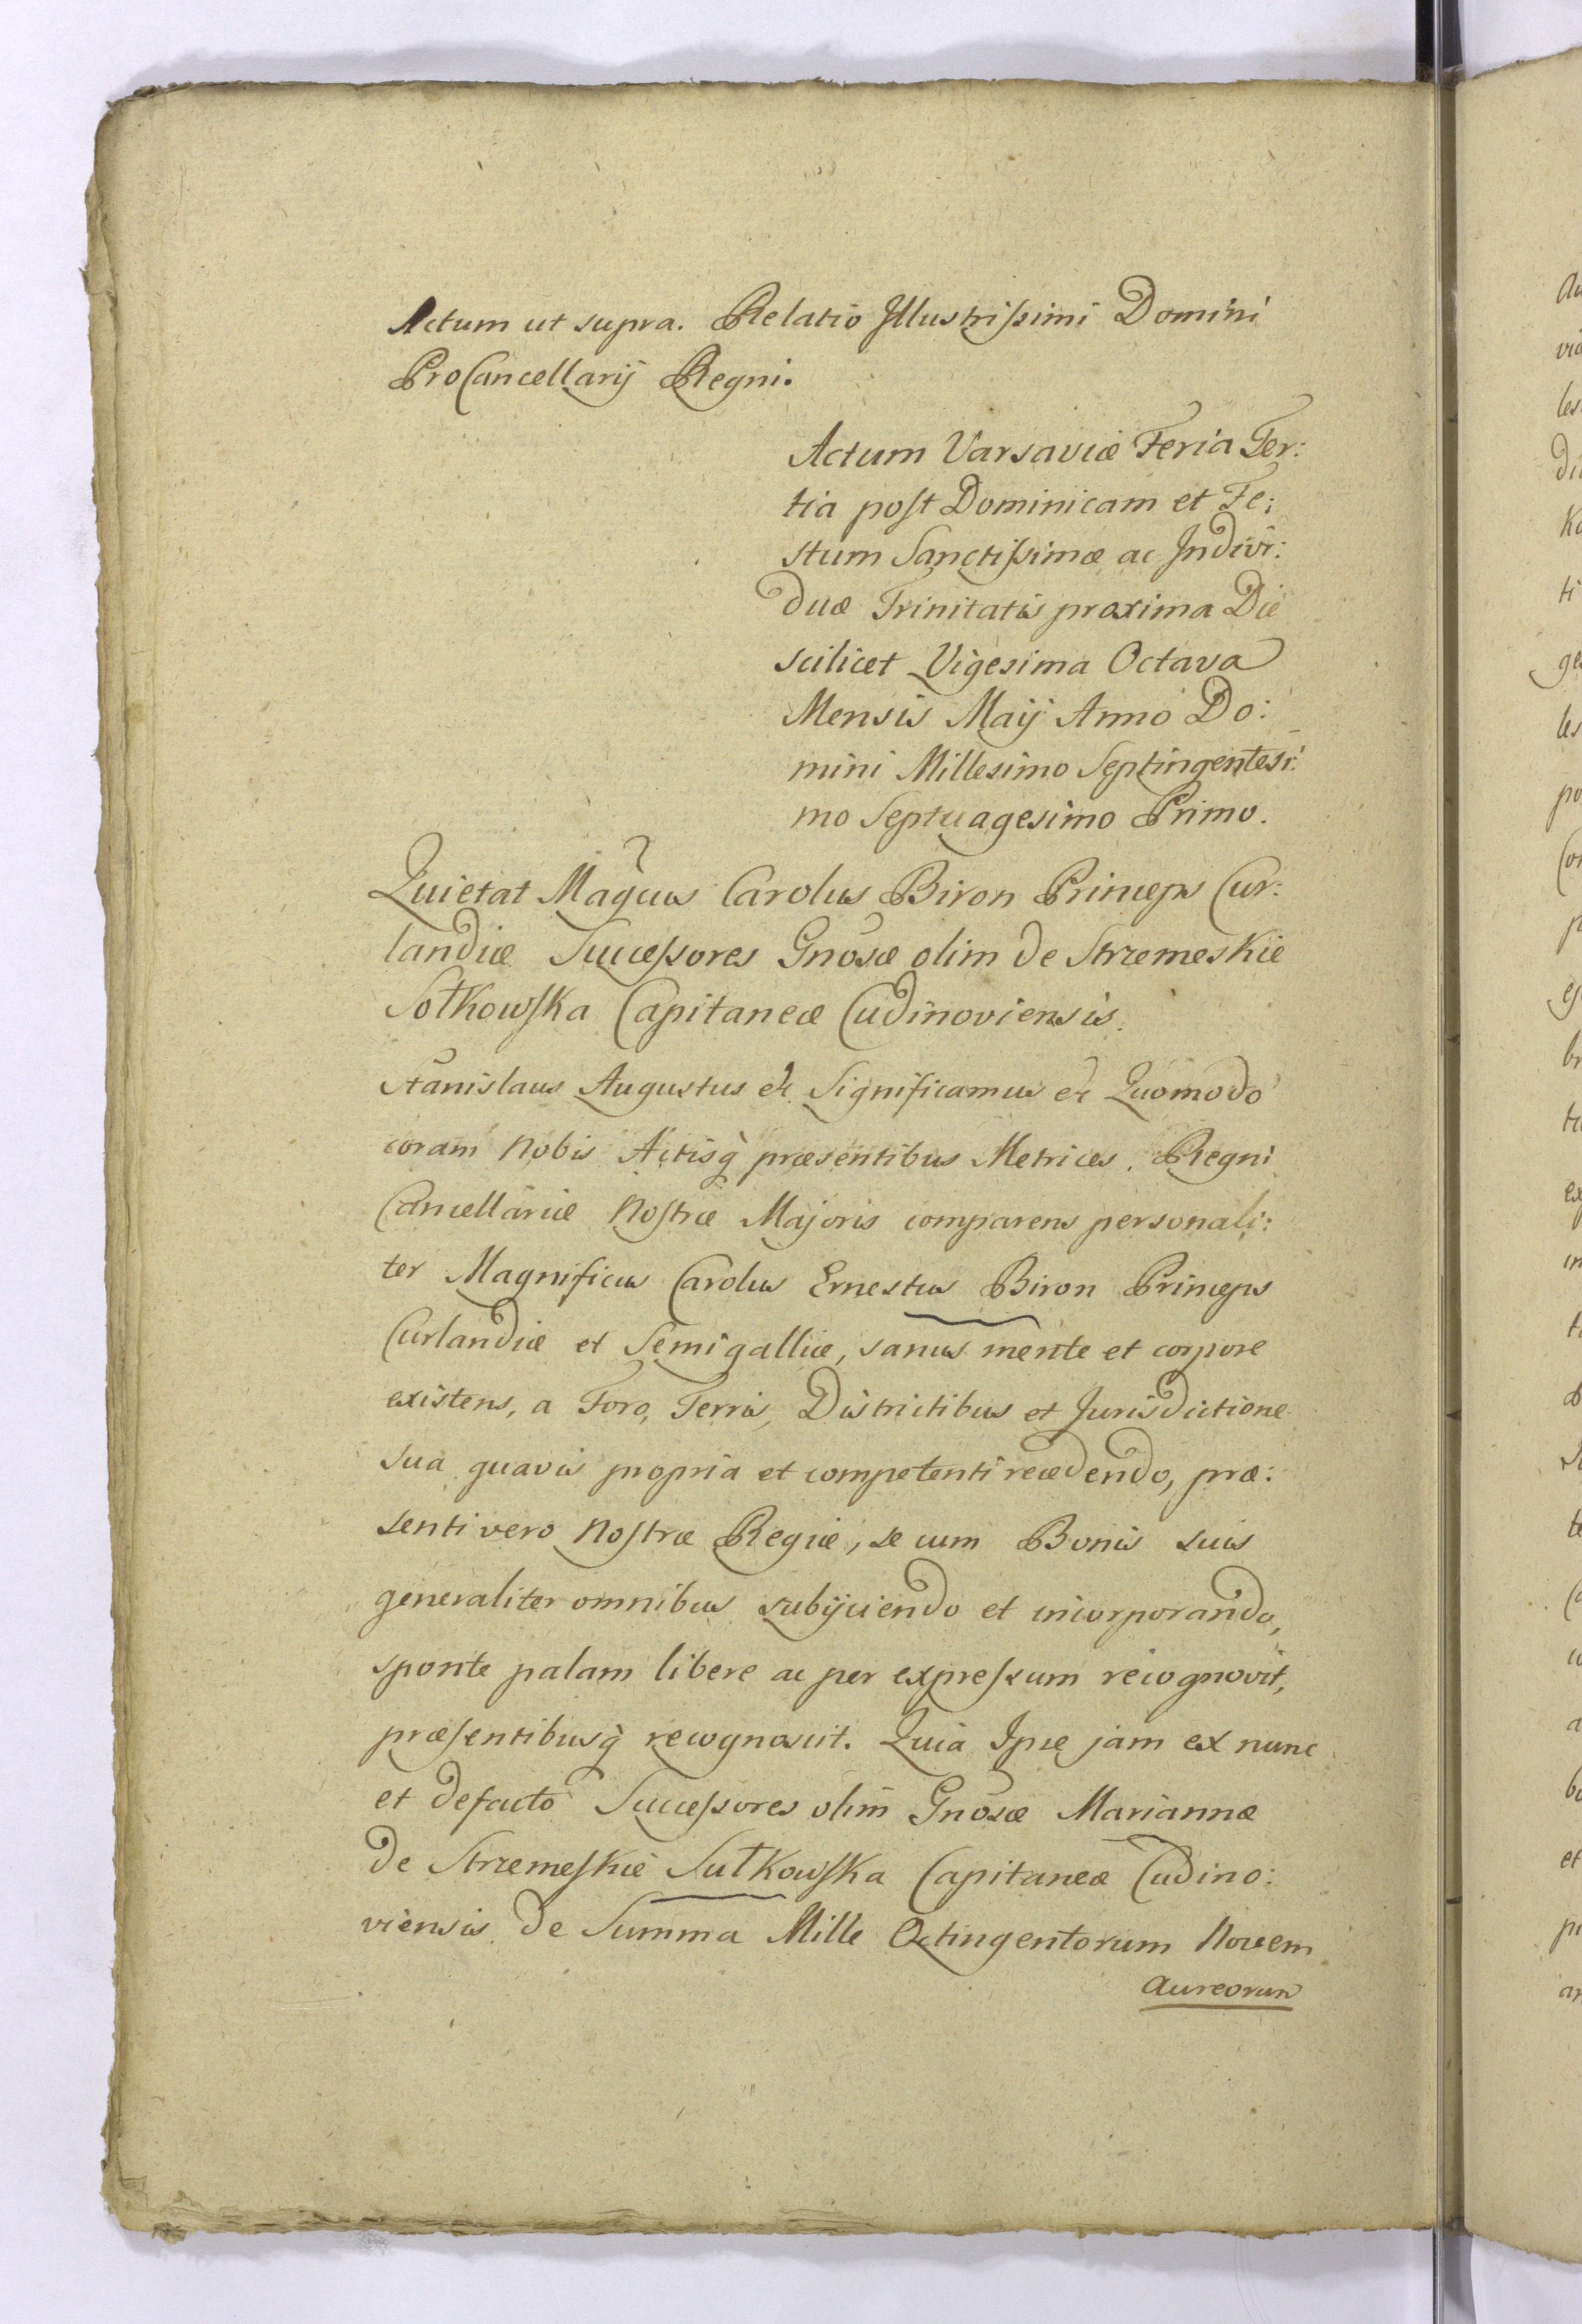 Actum ut supra. Relatio Illustrissimi Domini
ProCancellarij Regni.
Actum Varsaviæ Feria Ter:
tia post Dominicam et Fe:
stum Sanctissimæ ac Indivi:
duæ Trinitatis proxima Die
scilicet Vigesima Octava
Mensis Maij Anno Do:
mini Millesimo Septingentesi:
mo Septuagesimo Primo.
Quietat Magcus Carolus Biron Princeps Cur:
landiæ Successores Gnosæ olim de Strzemeskie
Sołkowska Capitaneæ Cudinoviensis.
Stanislaus Augustus etc. Significamus etc Quomodo
coram Nobis Actisq̀ præsentibus Metrices Regni
Cancellariæ Nostræ Majoris comparens personali:
ter Magnificus Carolus Ernestus Biron Princeps
Curlandiæ et Semigalliæ, sanus mente et corpore
existens, a Foro, Terris, Districtibus et Jurisdictione
sua quavis propria et competenti recedendo, præ:
senti vero Nostræ Regiæ, se cum Bonis suis
generaliter omnibus subijciendo et incorporando,
sponte palam libere ac per expressum recognovit,
præsentibusq̀ recognoscit. Quia Ipse jam ex nunc
et defacto Successores olim Gnosæ Mariannæ
de Strzemeskie Sułkowska Capitaneæ Cudino:
viensis de Summa Mille Octingentorum Novem
Aureorum